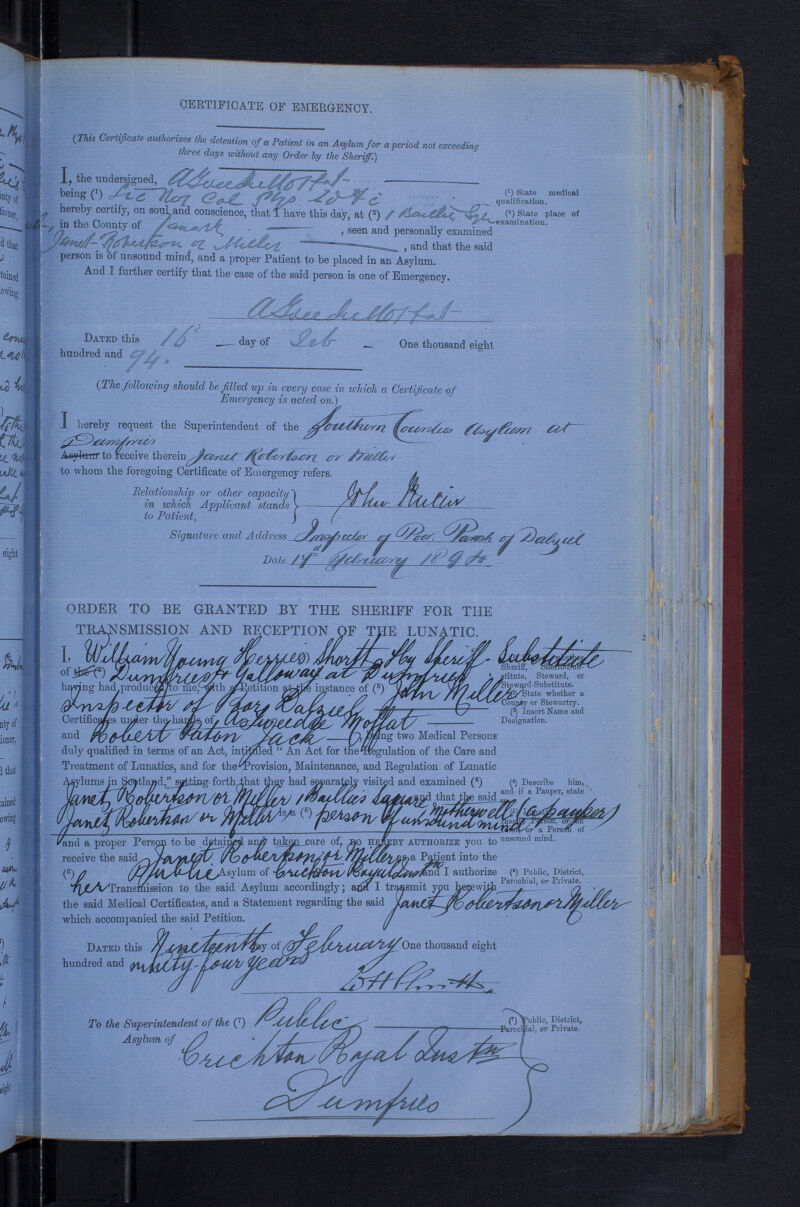 CERTIFICATE OF EMERGENCY.
(This Certificate authorizes the detention of a Patient in an Asylum for a period not exceeding
three days without any Order by the Sheriff.)
I, the undersigned,
being (¹) Lic Roy Col Phys
(¹) State medical
qualification.
hereby certify, on soul and conscience, that I have this day, at (²) 1 Baillie Sqr
(²) State place of
examination.
in the County of Lanark, seen and personally examined
Janet Robertson or Miller, and that the said
person is of unsound mind, and a proper Patient to be placed in an Asylum.
And I further certify that the case of the said person is one of Emergency.
DATED this 16 day of Feb One thousand eight
hundred and 94.
(The following should be filled up in every case in which a Certificate of
Emergency is acted on.)
I hereby request the Superintendent of the Southern Counties Asylum at
Dumfries
Asylum to receive therein Janet Robertson or Miller
to whom the foregoing Certificate of Emergency refers.
Relationship or other capacity
in which Applicant stands
to Patient,
John Miller
Signature and Address Inspector of Poor. Parish of Dalziel
Date February 1894.
ORDER TO BE GRANTED BY THE SHERIFF FOR THE
TRANSMISSION AND RECEPTION OF THE LUNATIC.
I, William Young Herries Shortt, Hy Sheriff-Substitute
Sheriff, Sheriff-Sub-
stitute, Steward, or
Steward-Substitute.
of the (²) Dumfries & Galloway at Dumfries
having had produced to me, with a Petition at the instance of (³) John Miller
(²) State whether a
County or Stewartry.
Inspector of Poor, Dalziel
(³) Insert Name and
Designation.
Certificates under the hands of A Sweedie Moffat
and Robert Paton Jack being two Medical Persons
duly qualified in terms of an Act, intituled "An Act for the Regulation of the Care and
Treatment of Lunatics, and for the Provision, Maintenance, and Regulation of Lunatic
Asylums in Scotland," setting forth that they had separately visited and examined (⁴)
(⁴) Describe him,
and if a Pauper, state
Janet Robertson or Miller, 1 Baillies Square Motherwell (a pauper)
and that the said
Janet Robertson or Miller is a (⁵) person of unsound mind
or a Person of
unsound mind.
and a proper Person to be detained and taken care of, DO HEREBY AUTHORIZE you to
receive the said Janet Robertson or Miller as a Patient into the
(⁶) Public Asylum of Crichton Royal Instn and I authorize
(⁶) Public, District,
Parochial, or Private.
her Transmission to the said Asylum accordingly; and I transmit you herewith
the said Medical Certificates, and a Statement regarding the said Janet Robertson or Miller
which accompanied the said Petition.
DATED this Nineteenth day of February One thousand eight
hundred and ninety-four years
To the Superintendent of the (⁷) Public
(⁷) Public, District,
Parochial, or Private.
Asylum of
Crichton Royal Instn
Dumfries